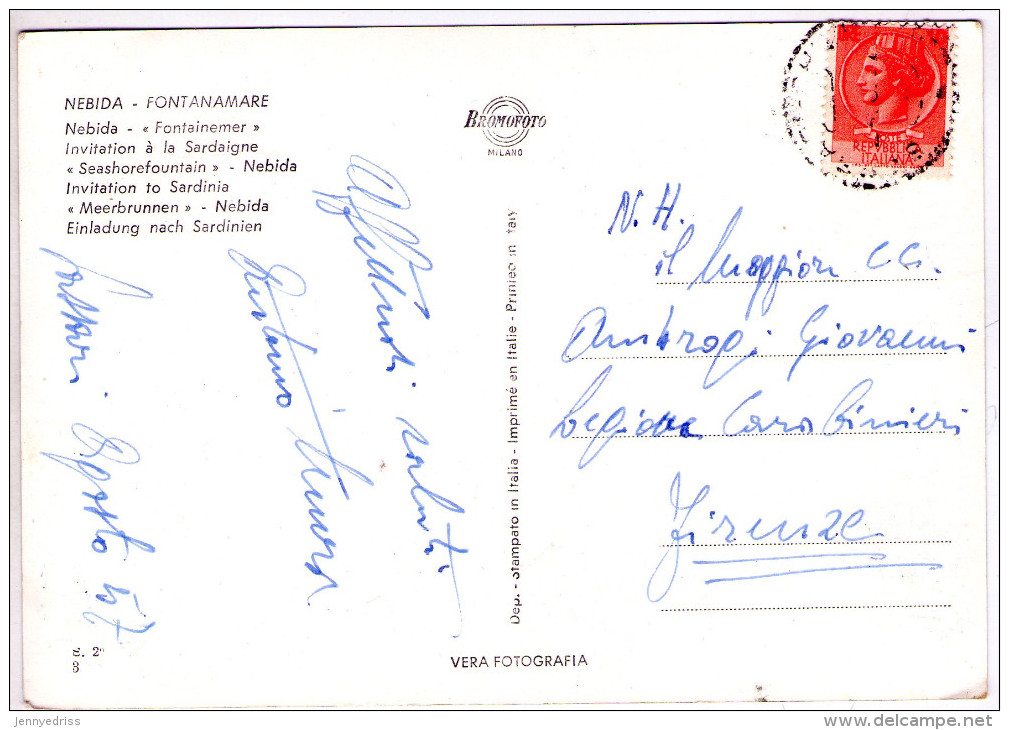 NEBIDA - FONTANAMARE
Nebida - « Fontainemer »
Invitation à la Sardaigne
« Seashorefountain » - Nebida
Invitation to Sardinia
« Meerbrunnen » - Nebida
Einladung nach Sardinien
BROMOFOTO
MILANO
REPVBBLICA
ITALIANA
N. H.
il Maggior CC.
Ambrogi Giovanni
Legione Carabinieri
Firenze
Affettuosi saluti
Agosto 57
Dep. - Stampato in Italia - Imprimé en Italie - Printed in Italy
S. 2°
3
VERA FOTOGRAFIA
jennydriss
delcampe.net